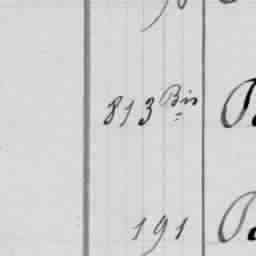 813 Bis
191